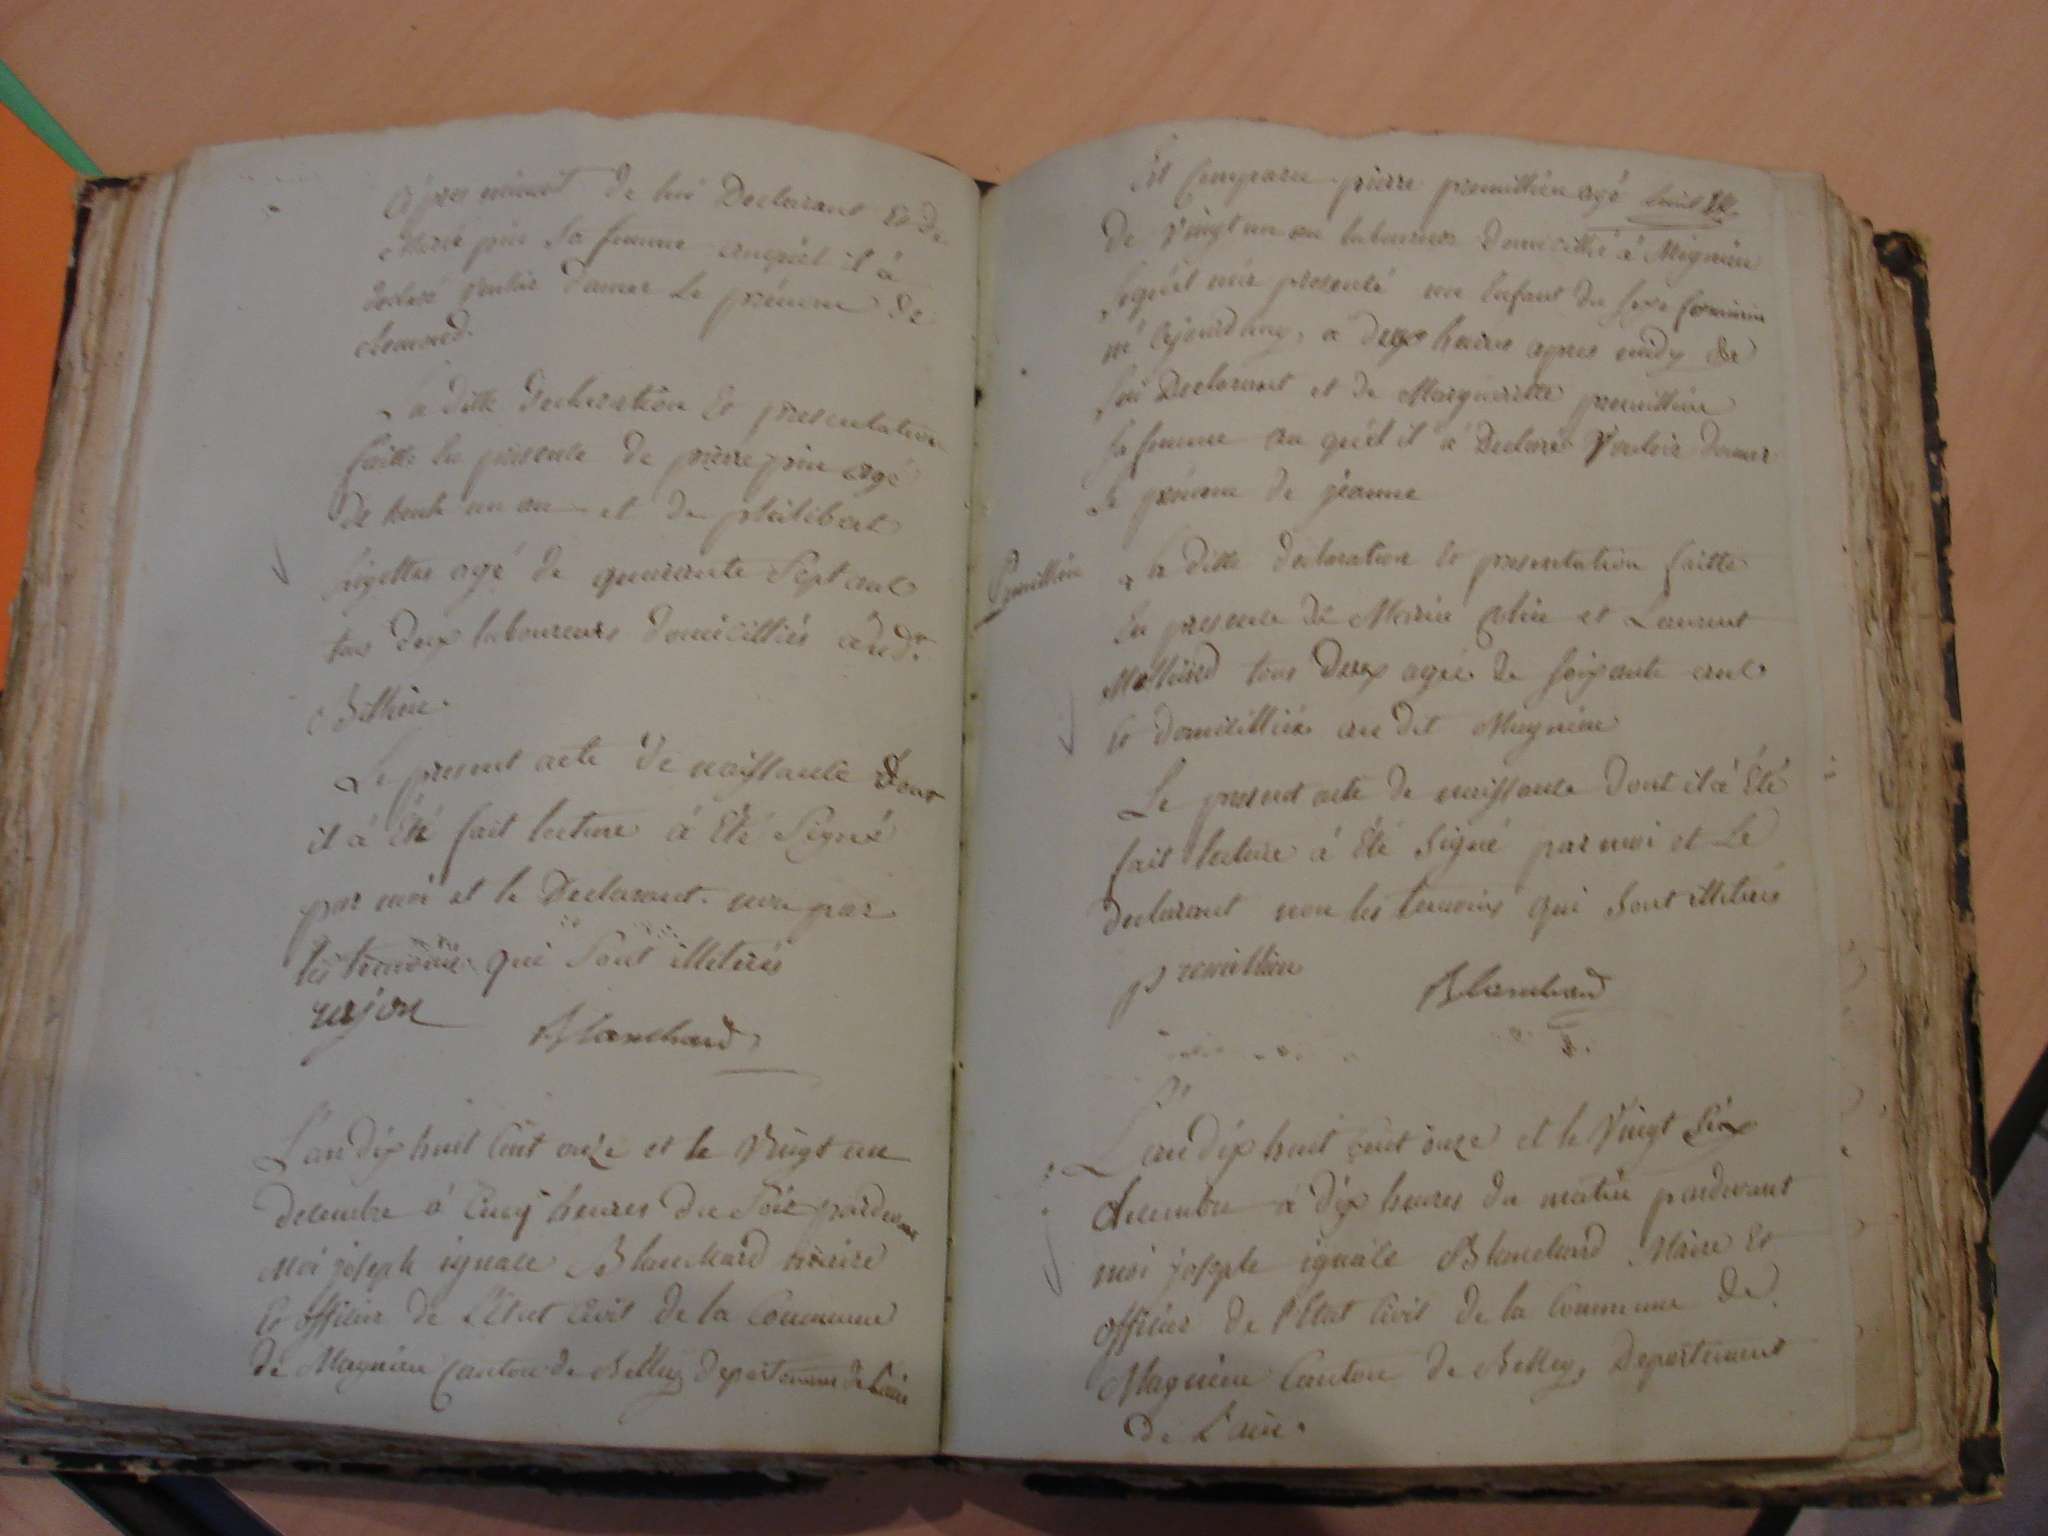 après minuit de lui Declarant Et de
Marie pin Sa femme auquel il à
declaré vouloir donner Le prénom de
La ditte declaration Et presentation
faitte En presence de pierre pin agé
de trente un an et de philibert
agé de quarante Sept ans
tous deux laboureurs domicilliés audt.
Billieu.
Le present acte de naissance dont
il à Eté fait lecture à Eté Signé
par moi et le Declarant. non par
les temoins qui Sont illeterés
rujon Blanchard
L'an dix huit Cent onze et le Vingt un
decembre à Cinq heures du Soir pardevant
Moi joseph ignace Blanchard maire
Et officier de L'Etat Civil de la Commune
de Magnieu Canton de Belley departement de L'ain
Est Comparu pierre premillieu agé
de Vingt un an laboureur domicillié à Magnieu
Lequel m'a presenté un Enfant du Sexe feminin
né ajourdhuy, à deux heures apres midy de
Lui Declarant et de Margueritte premillieu
Sa femme au quel il à Declaré Vouloir donner
le prénom de jéanne
Premillieu
La ditte declaration Et presentation faitte
En presence de Marin Colin et Laurent
Mollard tous deux agés de soixante ans
Et domicilliés au dit Magnieu
Le present acte de naissance dont il à Eté
fait lecture à Eté Signé par moi et Le
declarant non les temoins qui Sont illeterés
premillieu Blanchard
L'an dix huit Cent onze et le Vingt Six
decembre à dix heures du matin pardevant
moi joseph ignace Blanchard Maire Et
officier de l'Etat Civil de la Commune de
Magnieu Canton de Belley, Departement
de L'ain.